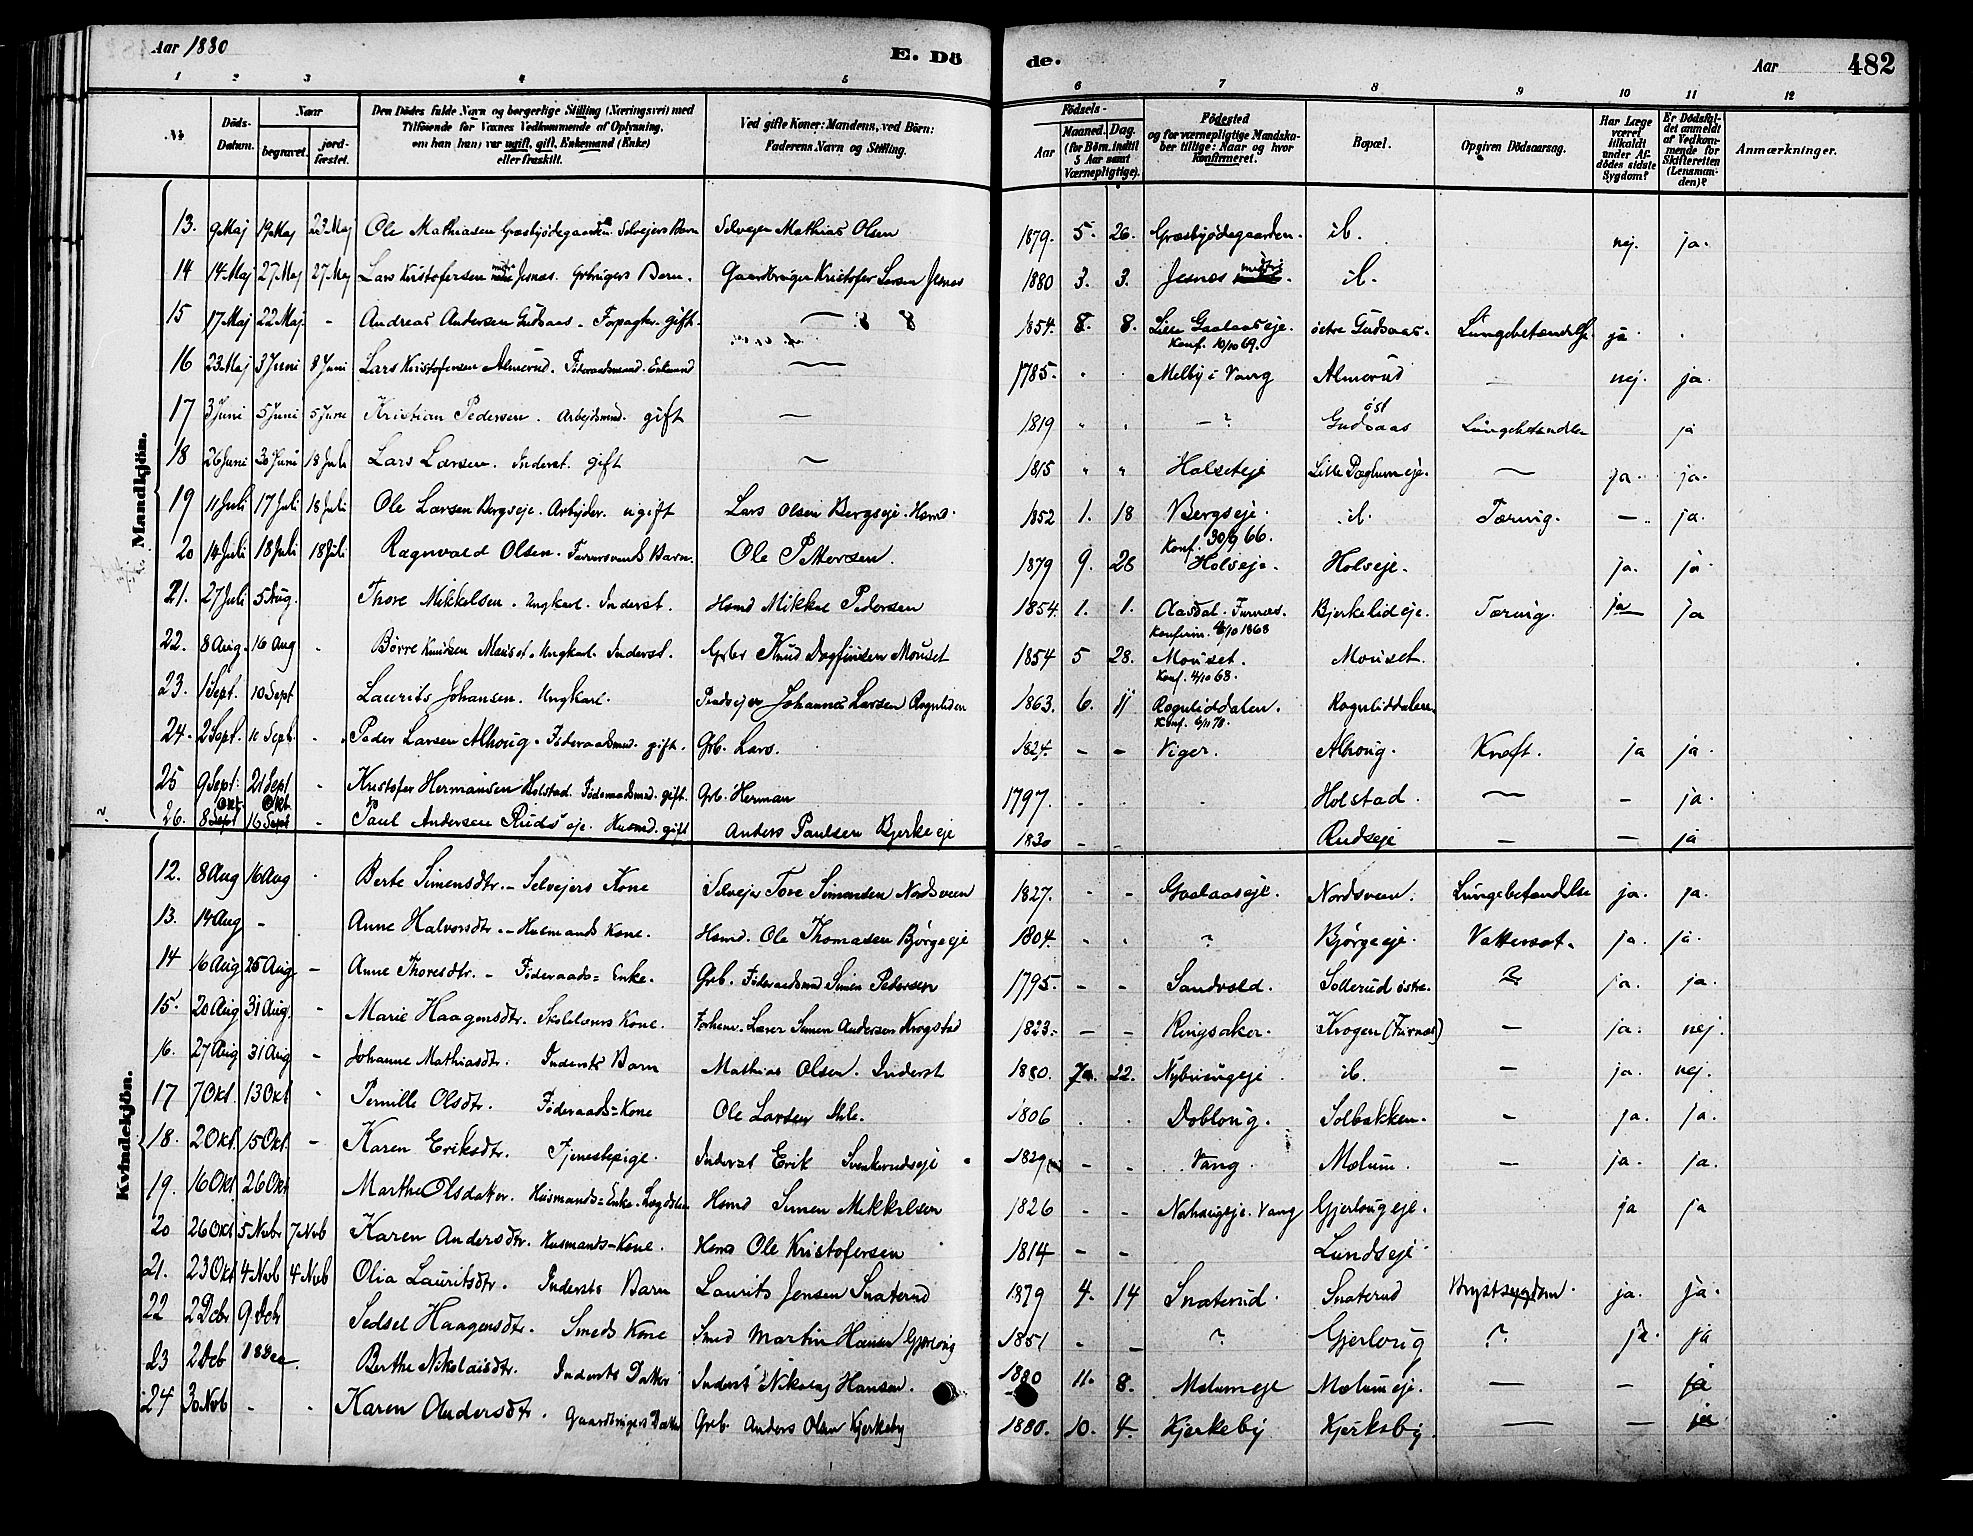 Aar 1880
E. Dö
de.
Aar
482
1 2 3 4 5 6 7 8 9 10 11 12
No
Döds-Datum.
Naar
begravet.
jordfæstet.
Den Dödes fulde Navn og borgerlige Stilling (Næringsvei) med Tilföiende for Voxnes Vedkommende af Oplysning, om han (hun) var ugift, gift, Enkemand (Enke) eller fraskilt.
Ved gifte Koner: Mandens, ved Börn: Faderens Navn og Stilling.
Födsels-
Aar
Maaned. Dag.
(for Börn indtil 5 Aar samt Værnepligtige).
Födested og for værnepligtige Mandskaber tillige: Naar og hvor Konfirmeret.
Bopæl.
Opgiven Dödsaarsag.
Har Læge været tilkaldt under Afdödes sidste Sygdom?
Er Dödsfaldet anmeldt af Vedkommende for Skifteretten (Lensmanden)?
Anmærkninger.
Mandkjön.
13. 9 Maj 19 Maj 23 Maj Ole Mathiasen Græsbjødegaarden Selvejers Barn Selvejer Mathias Olsen 1879. 5. 26. Græsbjødegaarden. ib. nej. ja.
14 14 Maj 27 Maj 27 Maj Lars Kristofersen Jesnes. Grbrugers Barn. Gaardbruger Kristofer Larsen Jesnes 1880 3. 3. Jesnes ib.
15 17 Maj 22 Maj - Andreas Andersen Gudsaas - Forpagtr. gift. — 1854. 8. 8. Lille Gaalaaseje. Konf. 10/10 69. östre Gudsaas. Lungebetændelse ja
16 23 Maj 3 Juni 8 Juni Lars Kristofersen Almerud. Föderaadsmand. Enkemd — 1785. Melby i Vang Almerud — nej. ja.
17 3 Juni 5 Juni 5 Juni Kristian Pedersen. Arbejdsmd. gift — 1819 " " —? öst Gudsaas Lungebetændlse ja
18 26 Juni 30 Juni 18 Juli Lars Larsen. Inderst. gift — 1815 " " Holseteje Lille Paghrumeje. — ja. ja.
19 11 Juli 17 Juli 18 Juli Ole Larsen Bergseje. Arbejder. ugift Lars Olsen Bergseje. Hsmd. 1852 1. 18 Bergseje. Konf. 30/9 66. ib. Tæring. — ja.
20 14 Juli 18 Juli 18 Juli Ragnvald Olsen. Barn. Ole Pettersen. 1879 9. 28 Holseje. Holseje. ja. ja.
21. 27 Juli 5 Aug. Thore Mikkelsen. Ungkarl. Inderst. Hsmd Mikkel Pedersen 1854. 1. 1. Aasdal. Furnes. Konfirm. 4/10 1868 Bjerkelideje. Tæring. ja ja
22. 8 Aug. 16 Aug - Børre Knudsen Mouset. Ungkarl. Inderst. Grbr Knud Dagfinsen Mouset 1854 5 28. Mouset. Konf. 4/10 68. Mouset.
23. 1 Sept. 10 Sept Laurits Johansen. Ungkarl. Johannes Larsen Rognliden 1863. 6. 11 Rognliddalen. Konf. 6/11 78. Rognliddalen.
24. 2 Sept. 11 Sept. - Peder Larsen Alhoug. Föderaadsmd. gift. Grb. Lars. 1824. - - Viger. Alhoug. Kræft. ja ja.
25 9 Sept. 21 Sept - Kristofer Hermansen Holstad. Föderaadsmd. gift. Grb. Herman 1797. Holstad. — - ja.
26. 8 Okt. 16 Okt. - Paul Andersen Rudseje. Husmd. gift Anders Paulsen Bjerkeeje 1830 - - Rudseje — — ja
Kvindekjön.
12. 8 Aug 16 Aug - Berte Simensdtr. - Selvejers Kone Selvejer Tore Simensen Nordsveen 1827. - - Gaalaaseje. Nordsveen. Lungebetændelse ja. ja.
13. 14 Aug - Anne Halvorsdtr. - Husmands Kone. Hsmd. Ole Thomasen Bjørgeeje 1804. ? Bjørgeeje. Vattersot. ja. ja.
14 16 Aug 25 Aug - Anne Thoresdtr. - Föderaads= Enke. Grb. Föderaadsmd Simen Pedersen 1795. - - Sandvold. Sollerud østre. ? ja. ja.
15. 20 Aug 31 Aug. - Marie Haagensdtr. Skolelærers Kone. Forhenv. Lærer Simen Andersen Krogstad 1823. - - Ringsaker. Krogen (Furnes) — ja. nej.
16. 27 Aug 31 Aug - Johanne Mathiasdtr.Indersts Barn Mathias Olsen. Inderst 1880. 7. 22. ib. — ja. nej.
17 7 Okt. 13 Okt - Pernille Olsdtr. Föderaads-Kone Ole Larsen 1806 Dobloug. Solbakken. - ja. ja.
18. 2 Okt. 15 Okt. - Karen Eriksdtr. Tjenestepige. Inderst Erik Svenkerudseje 1829 - - Vang. Mælum. — ja. ja.
19. 16 Okt 26 Okt Marthe Olsdatter. Husmands=Enke. Hsmd Simen Mikkelsen 1826 - - Vang Gjerlougeje. ja ja
20 26 Okt 5 Novbr 7 Novb Karen Andersdtr. Husmands-Kone. Hsmd Ole Kristofersen 1814 - - Lundseje
21. 23 Okt 4 Novb 4 Novb Olia Lauritsdtr. Indersts Barn Laurits Jensen Snaterud 1879 4. 14 Snaterud. Snaterud Brystsygdom. ja. ja.
22 2 Dcbr 9 Dcb Sedsel Haagensdtr. Smeds Kone Smed Martin Hansen Gjerloug 1851 - - ? Gjerloug ? ja. ja
23 2 Dcb 18 Dec. Berthe Nikolaisdtr. Indersts Datter Inderst Nikolaj Hansen. 1880 11. 8. Mælumeje Mælumeje. — - ja
24 3 Novb - - Karen Andersdtr. Gaardbrugers Datter Grb. Anders Olsen Kjerkeby 1880. 10. 4. Kjerkeby Kjerkeby. — — ja